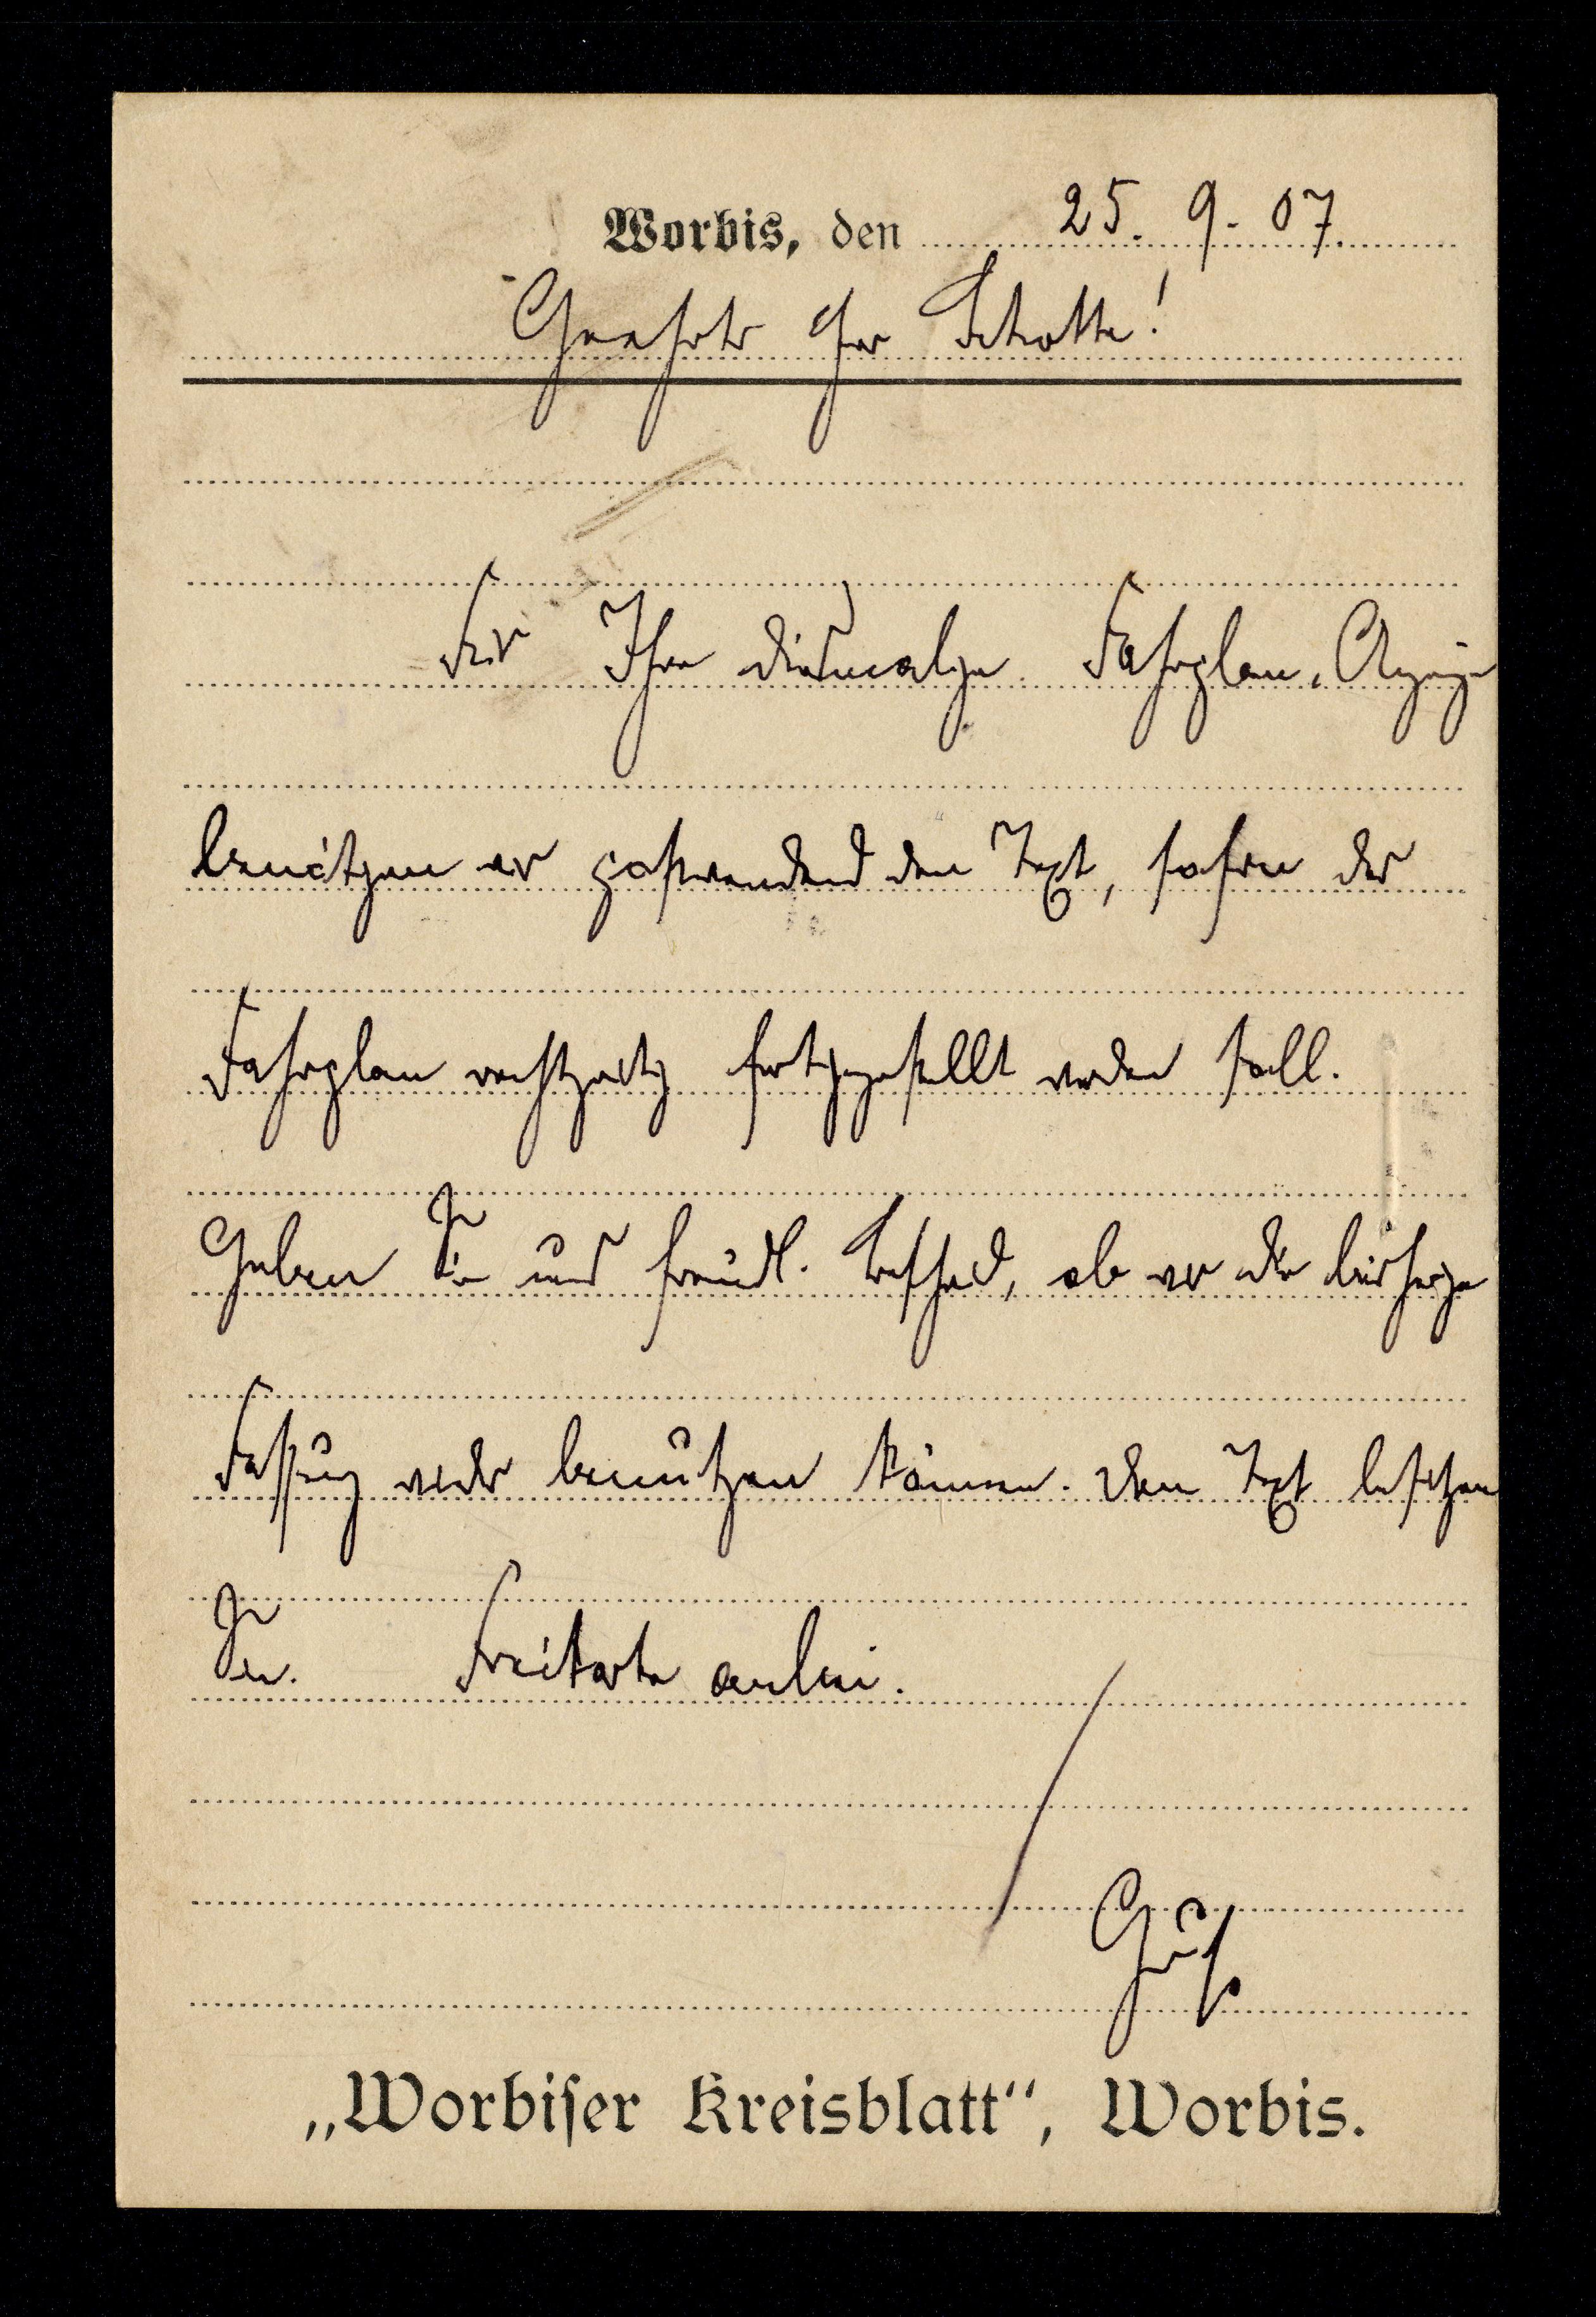 Worbis, den 25. 9. 07.
Geehrter Herr Schotte!
Für Ihre diesmalige Fahrplan-Anzeige
benötigen wir postwendend den Text, sofern der
Fahrplan rechtzeitig fertiggestellt werden soll.
Geben Sie uns freundl. Bescheid, ob wir die bisherige
Fassung wieder benutzen können. Den Text
Freikarte anbei.
„Worbiſer Kreisblatt“, Worbis.